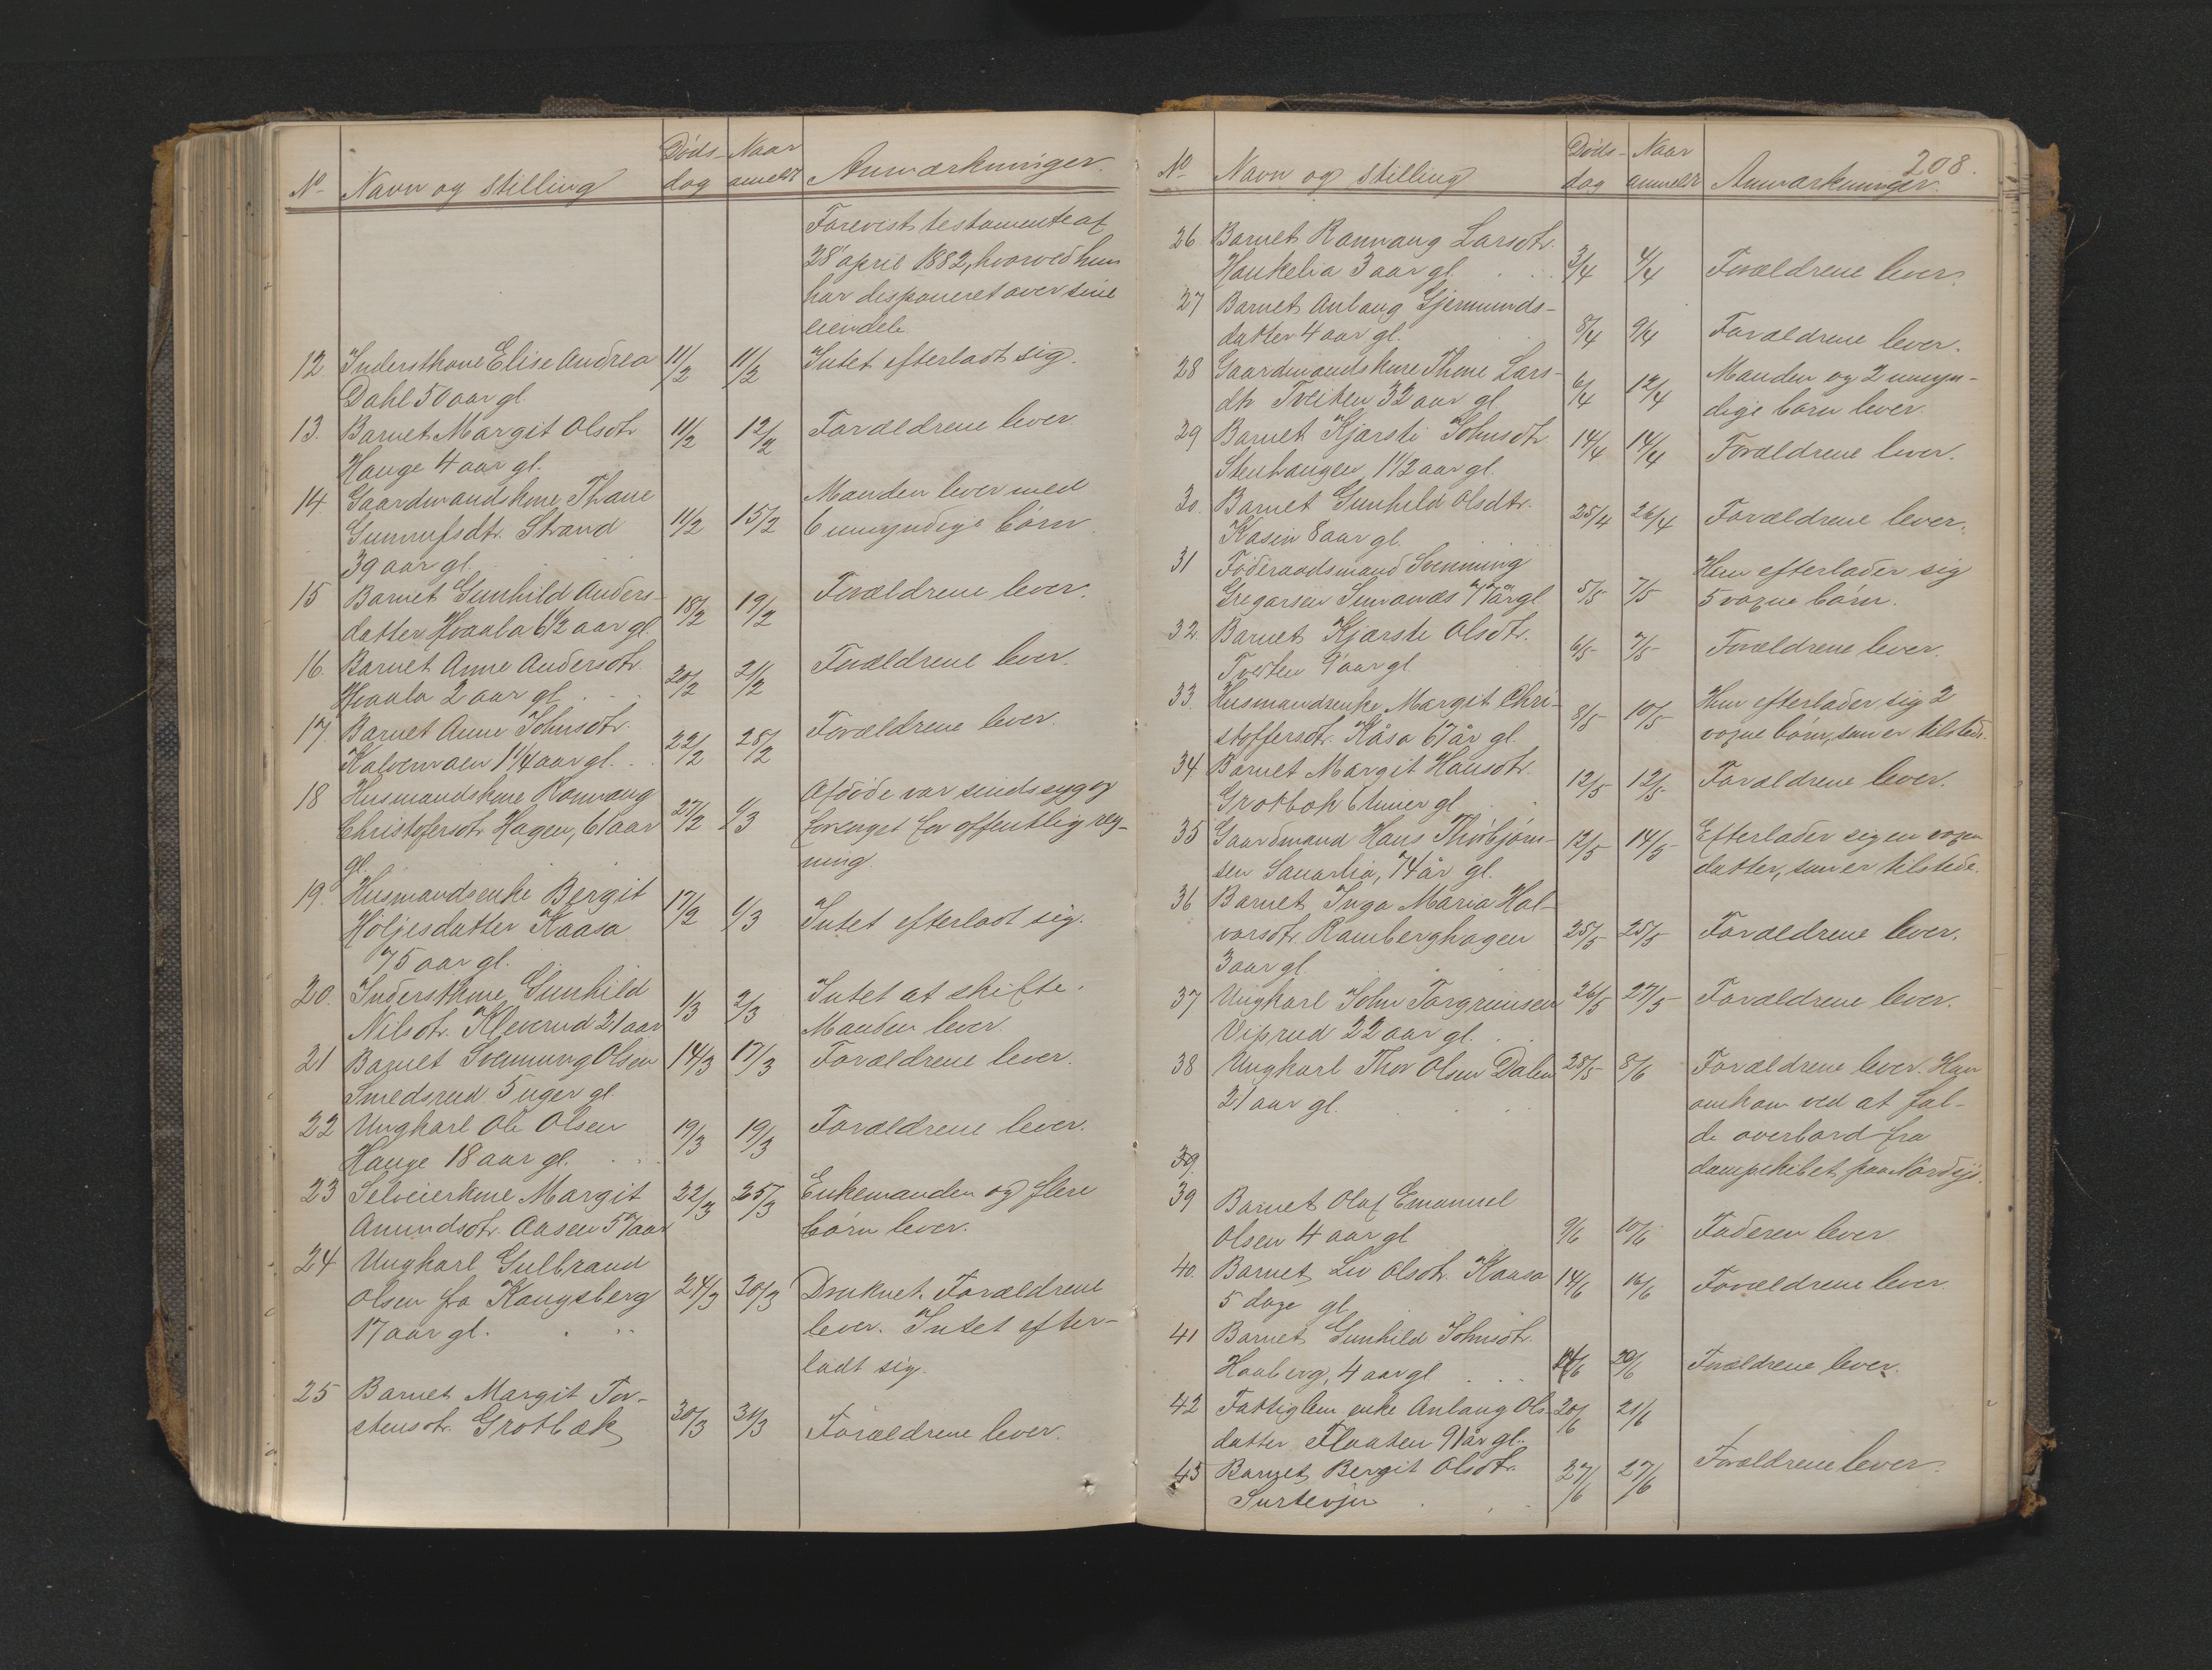 No Navn og stilling Døds- dag Naar anmeldt Anmærkninger.
Forevist testamente af
28' april 1882, hvorved hun
har disponeret over sine
eiendele
12 Inderstkone Elise Andrea 11/2 11/2 Intet efterladt sig.
Dahl 50 aar gl.
13. Barnet Margit Olsdtr. 11/2 12/2 Forældrene lever
Hauge 4 aar gl.
14 Gaardmandskone Thone
Gunnufsdtr. Strand 11/2 15/2 Manden lever med
39 aar gl. 6 umyndige børn.
15 Barnet Gunhild Anders-
datter Hvaala 6 1/2 aar gl. 18/2 19/2 Forældrene lever.
16. Barnet Anne Andersdtr.
Hvaala 2 aar gl. 20/2 21/2 Forældrene lever.
17. Barnet Anne Johnsdtr.
Kalvemoen 1 1/4 aar gl. 22/2 28/2 Forældrene lever.
18 Husmandskone Ronnaug
Christofersdtr. Hagen, 61 aar 27/2 1/3 Afdøde var sindssyg og
gl. forsørget for offentlig reg-
ning.
19. Husmandsenke Bergit
Høljesdatter Kaasa 17/2 1/3 Intet efterladt sig.
75 aar gl.
20. Inderstkone Gunhild
Nilsdtr. Kleverud 21 aar 1/3 2/3 Intet at skifte.
Manden lever.
21 Barnet Svennung Olsen 14/3 17/3 Forældrene lever.
Smedsrud 5 uger gl.
22 Ungkarl Ole Olsen 19/3 19/3 Forældrene lever.
Hauge 18 aar gl.
23 Selveierkone Margit 22/3 25/3 Enkemanden og flere
Amundsdtr. Aasen 57 aar børn lever.
24 Ungkarl Gulbrand
Olsen fra Kongsberg 24/3 30/3 Druknet. Forældrene
17 aar gl. lever. Intet efter-
ladt sig.
25 Barnet Margit Tor-
stensdtr. Grotbæk 30/3 31/3 Forældrene lever.
208.
No Navn og stilling Døds- dag Naar anmeldt Anmærkninger.
26. Barnet Ronnaug Larsdtr.
Haukelia 3 aar gl. 3/4 4/4 Forældrene lever.
27 Barnet Anlaug Gjermunds-
datter 4 aar gl. 8/4 9/4 Forældrene lever.
28 Gaardmandskone Thone Lars-
dtr Tveiten 32 aar gl. 6/4 12/4 Manden og 2 umyn-
dige børn lever.
29 Barnet Kjersti Johnsdtr.
Stenhaugen 1 1/2 aar gl. 14/4 14/4 Forældrene lever.
30. Barnet Gunhild Olsdtr.
Kasin 8 aar gl. 25/4 26/4 Forældrene lever.
31 Føderaadsmand Svennung
Gregarsen 77 år gl. 5/5 7/5 Han efterlader sig
5 voxne børn.
32. Barnet Kjersti Olsdtr. 6/5 7/5 Forældrene lever.
9 aar gl
33. Husmandsenke Margit Chri-
stoffersdtr. Kåsa 67 år gl. 8/5 10/5 Hun efterlader sig 2
voxne børn, som er tilstede.
34 Barnet Margit Hansdtr.
Grotbøk 6 timer gl 12/5 12/5 Forældrene lever.
35 Gaardmand Hans Thorbjørn-
sen 74 år gl. 12/5 14/5 Efterlader sig en voxen
datter, som er tilstede.
36 Barnet Inga Maria Hal-
vorsdtr. Ramberghagen 25/5 25/5 Forældrene lever.
3 aar gl.
37 Ungkarl John Torgrimsen 26/5 27/5 Forældrene lever.
Viprud 22 aar gl.
38 Ungkarl Thor Olsen Dalen 28/5 8/6 Forældrene lever. Han
21 aar gl. omkom ved at fal-
de overbord fra
dampskibet paa Nordsjø.
39.
39 Barnet Olaf Emanuel
Olsen 4 aar gl 9/6 10/6 Faderen lever
40. Barnet Liv Olsdtr. Kaasa 14/6 16/6 Forældrene lever
5 dage gl.
41 Barnet Gunhild Johnsdtr.
Haaberg, 4 aar gl 14/6 20/6 Forældrene lever.
42 Fattiglem enke Anlaug Ols- 20/6 21/6
datter Flaaten 91 år gl.
43 Barnet Bergit Olsdtr. 27/6 27/6 Forældrene lever.
Surtevju